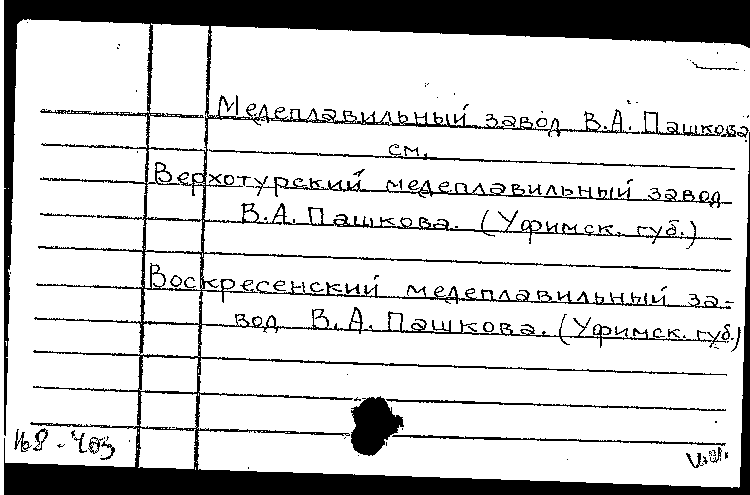 Медеплавильный завод В.А. Пашкова
см.
Верхотурский медеплавильный завод
В.А. Пашкова. (Уфимск. губ.)
Воскресенский медеплавильный за-
вод В.А. Пашкова. (Уфимск. губ.)